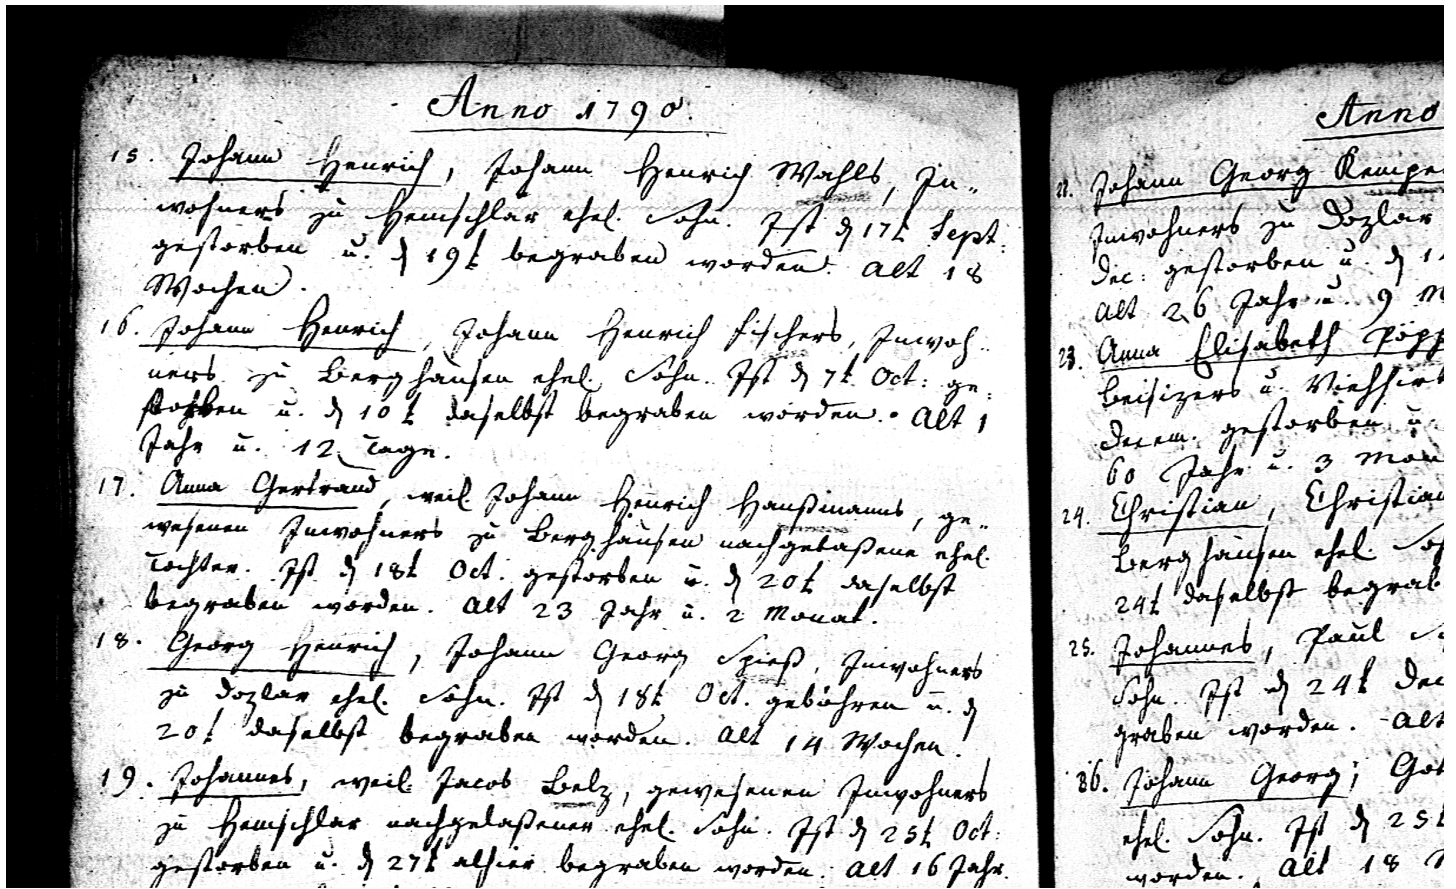 Anno 1790.
15. Johann Henrich, Johann Henrich Wahls, In-
wohners zu Hemschlar ehel. Sohn. Ist d 17t Sept:
gestorben u. d 19t begraben worden. Alt 18
Wochen.
16. Johann Henrich, Johann Henrich Fischers, Inwoh-
ners zu Berghausen ehel. Sohn. Ist d 7t Oct: ge-
storben u. d 10t daselbst begraben worden. Alt 1
Jahr u. 12 Tage.
17. Anna Gertraud, weil. Johann Henrich Haußmanns, ge-
wesenen Inwohners zu Berghausen nachgelaßene ehel.
Tochter. Ist d 18t Oct. gestorben u. d 20t daselbst
begraben worden. Alt 23 Jahr u. 2 Monat.
18. Georg Henrich, Johann Georg Spieß, Inwohners
zu Dozlar ehel. Sohn. Ist d 18t Oct. gebohren u. d
20t daselbst begraben worden. Alt 14 Wochen.
19. Johannes, weil. Jacob Belz, gewesenen Inwohners
zu Hemschlar nachgelaßener ehel. Sohn. Ist d 25t Oct:
gestorben u. d 27t alhier begraben worden. Alt 16 Jahr.
Anno
22. Johann Georg Kempe
Inwohners zu Dozlar
Dec: gestorben u. d 1
Alt 26 Jahr u. 9 M
23. Anna Elisabeth Pöpp
Beisizers u. Viehhirt
Decem. gestorben u.
60 Jahr u. 3 Mon
24. Christian, Christian
Berghausen ehel. So
24t daselbst begrab
25. Johannes, Paul S
Sohn. Ist d 24t Dec
graben worden. Alt
36. Johann Georg, Got
ehel. Sohn. Ist d 25t
worden. Alt 18